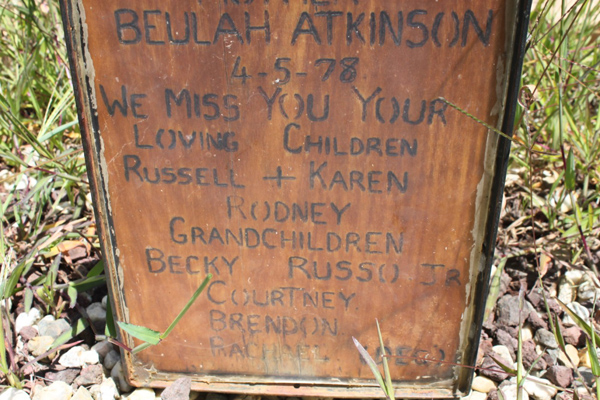 BEULAH ATKINSON
4-5-78
WE MISS YOU YOUR
LOVING CHILDREN
RUSSELL + KAREN
RODNEY
GRANDCHILDREN
BECKY RUSSO JR
COURTNEY
BRENDON
RACHAEL (DEC)